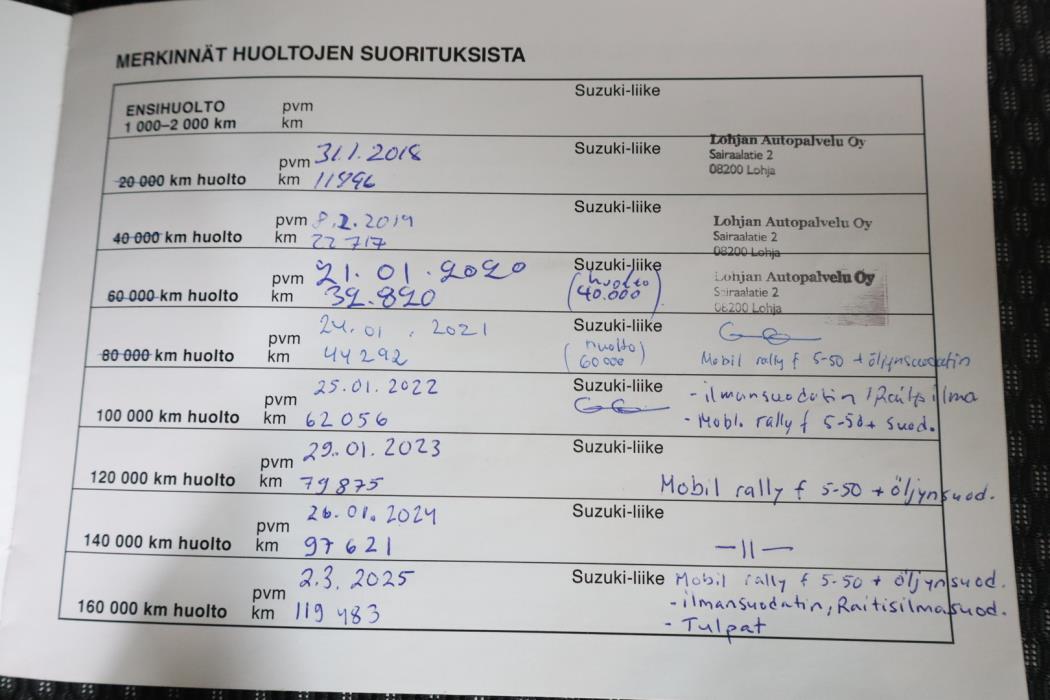 MERKINNÄT HUOLTOJEN SUORITUKSISTA
ENSIHUOLTO pvm Suzuki-liike
1 000–2 000 km km
pvm 31.1.2018 Suzuki-liike Lohjan Autopalvelu Oy
Sairaalatie 2
20 000 km huolto km 11896 08200 Lohja
pvm 8.2.2019 Suzuki-liike Lohjan Autopalvelu Oy
Sairaalatie 2
40 000 km huolto km 22 717 08200 Lohja
pvm 21.01.2020 Suzuki-liike Lohjan Autopalvelu Oy
(huolto Sairaalatie 2
60 000 km huolto km 32.820 40.000) 08200 Lohja
pvm 24.01.2021 Suzuki-liike
(huolto
80 000 km huolto km 44 292 60 000) Mobil rally f 5-50 + öljynsuodatin
pvm 25.01.2022 Suzuki-liike - ilmansuodatin
100 000 km huolto km 62 056 - Mobl. rally f 5-50 + suod.
pvm 29.01.2023 Suzuki-liike
120 000 km huolto km 79875 Mobil rally f 5-50 + öljynsuod.
pvm 26.01.2024 Suzuki-liike
140 000 km huolto km 97 621 —11—
pvm 2.3.2025 Suzuki-liike Mobil rally f 5-50 + öljynsuod.
160 000 km huolto km 119 483 - ilmansuodatin, Raitisilmasuod.
- Tulpat